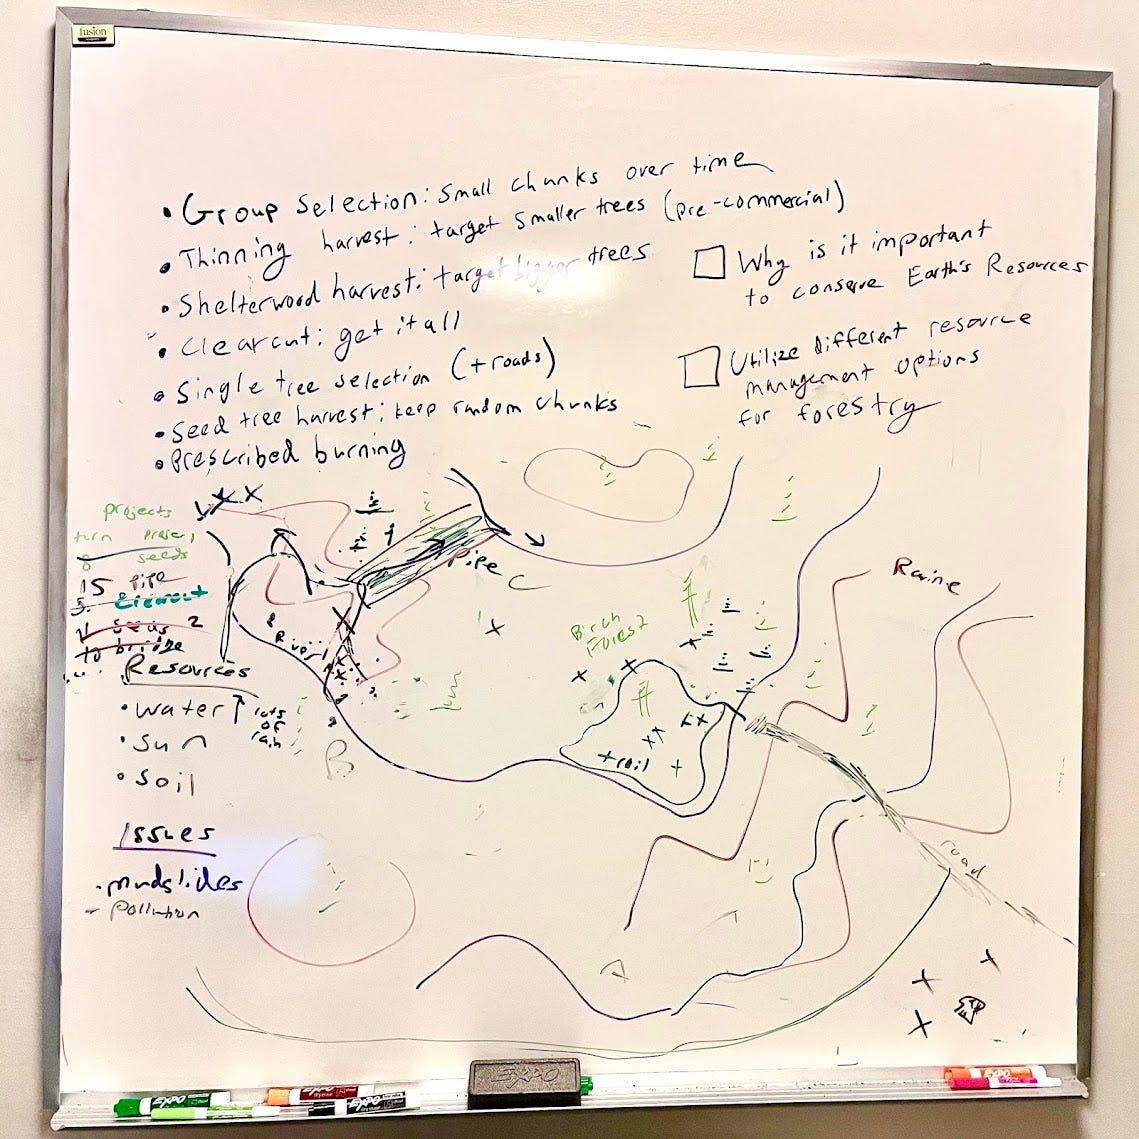 fusion
• Group Selection: small chunks over time
• Thinning harvest: target smaller trees (pre-commercial)
• Shelterwood harvest: target bigger trees
• Clearcut: get it all
• Single tree selection (+roads)
• Seed tree harvest: keep random chunks
• Prescribed burning
Why is it important
to conserve Earth's Resources
Utilize different resource
management options
for forestry
projects
turn
8 seeds
15 Pipe
Clearcut
2
to bridge
Resources
• water ↑ lots
of
rain
• Sun
• Soil
Issues
- mudslides
- Pollution
River
Pipe
C
B
Birch
Forest
soil
Ravine
road
A
EXPO
EXPO
EXPO
EXPO